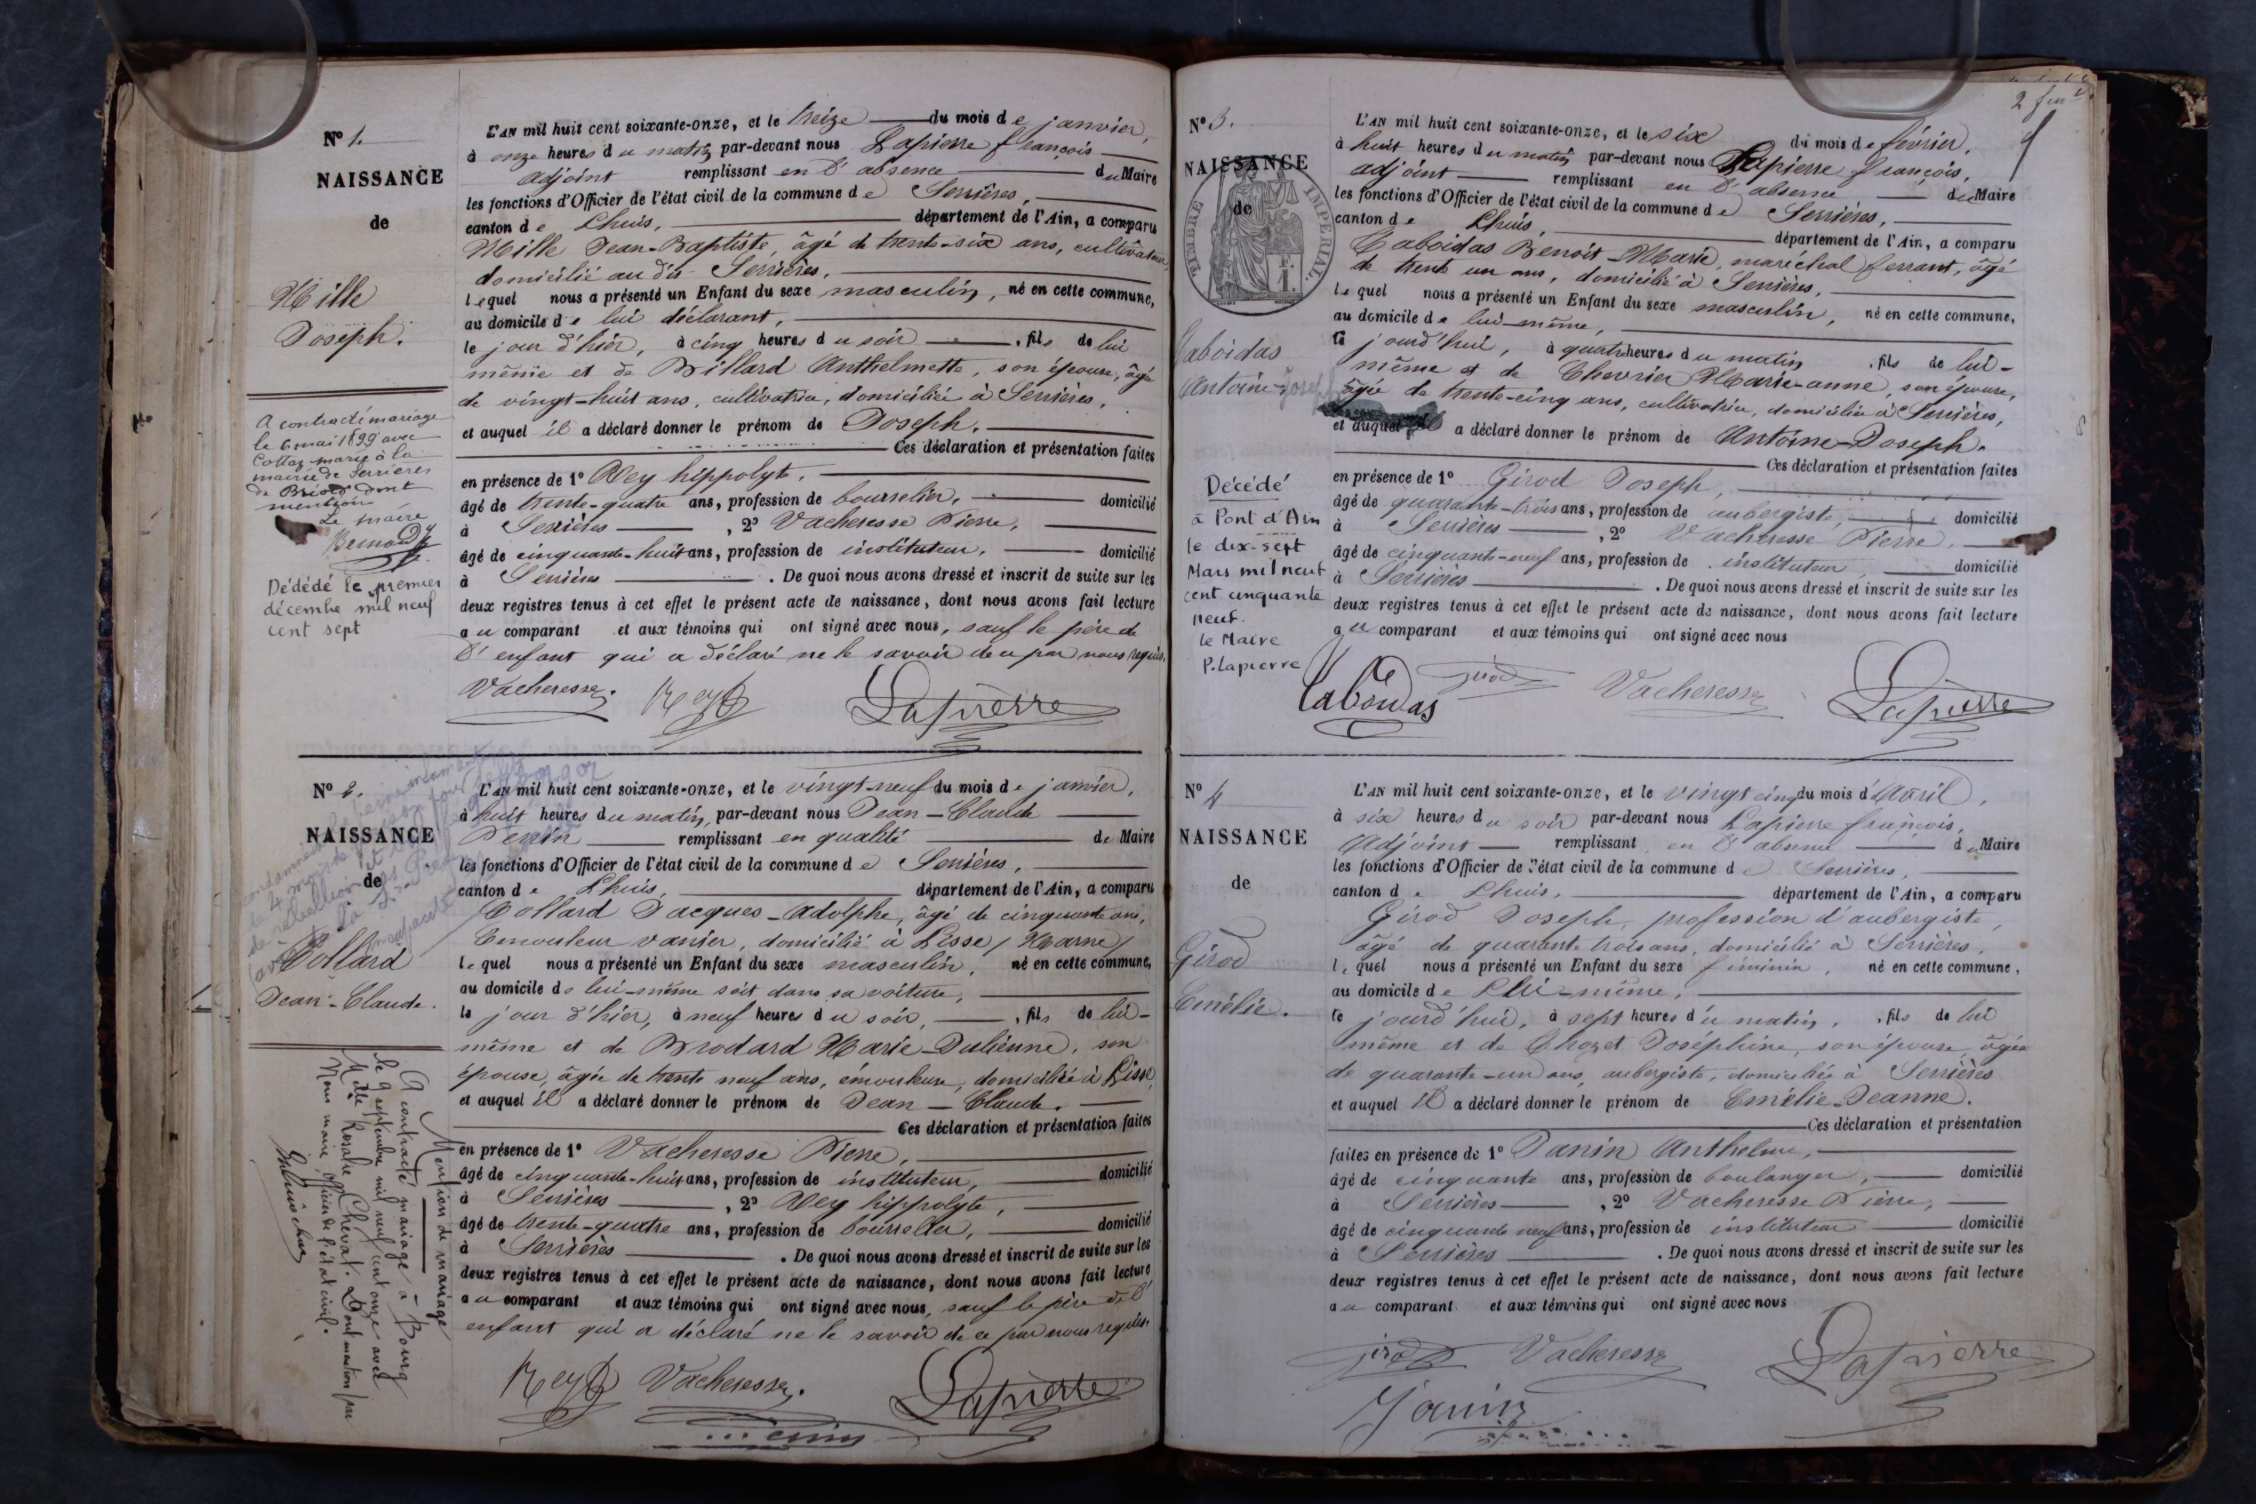 N° 1.
NAISSANCE
de
Mille
Joseph.
A contracté mariage
le 6 mai 1899 avec
Collaz marie à la
mairie de Serrières
de Briord dont
mention
Le maire
Dédédé le premier
décembre mil neuf
cent sept
L'AN mil huit cent soixante-onze, et le treize du mois de janvier,
à onze heures du matin par-devant nous Lapierre françois
adjoint remplissant en l'absence du Maire
les fonctions d'Officier de l'état civil de la commune de Serrières,
canton de Lhuis, département de l'Ain, a comparu
Mille Jean-Baptiste, âgé de trente-six ans, cultivateur,
domicilié au dit Serrières,
lequel nous a présenté un Enfant du sexe masculin, né en cette commune,
au domicile de lui déclarant,
le jour d'hier, à cinq heures du soir, fils de lui
même et de Billard Anthelmette, son épouse, âgée
de vingt-huit ans, cultivatrice, domiciliée à Serrières,
et auquel il a déclaré donner le prénom de Joseph.
Ces déclaration et présentation faites
en présence de 1° Rey hippolyte,
âgé de trente-quatre ans, profession de bourrelier, domicilié
à Serrières, 2° Vacheresse Pierre,
âgé de cinquante-huit ans, profession de instituteur, domicilié
à Serrières. De quoi nous avons dressé et inscrit de suite sur les
deux registres tenus à cet effet le présent acte de naissance, dont nous avons fait lecture
au comparant et aux témoins qui ont signé avec nous, sauf le père de
l'enfant qui a déclaré ne le savoir de ce par nous requis.
Vacheresse. Rey Lapierre
N° 2.
NAISSANCE
de
Collard
Jean-Claude.
Mention de mariage
A contracté mariage à Bourg
le 9 septembre mil neuf cent onze avec
Melle Rosalie Chevat. Dont mention par
Nous maire, officier de l'état civil.
L'AN mil huit cent soixante-onze, et le vingt-neuf du mois de janvier,
à huit heures du matin, par-devant nous Jean-Claude
remplissant en qualité de Maire
les fonctions d'Officier de l'état civil de la commune de Serrières,
canton de Lhuis, département de l'Ain, a comparu
Collard Jacques-Adolphe, âgé de cinquante ans,
Emouleur vanier, domicilié à Lisse (Marne)
lequel nous a présenté un Enfant du sexe masculin, né en cette commune,
au domicile de lui-même soit dans sa voiture,
le jour d'hier, à neuf heures du soir, fils de lui-
même et de Brodard Marie-Julienne, son
épouse, âgée de trente neuf ans, émouleuse, domiciliée à Lisse,
et auquel il a déclaré donner le prénom de Jean-Claude.
Ces déclaration et présentation faites
en présence de 1° Vacheresse Pierre,
âgé de cinquante-huit ans, profession de instituteur, domicilié
à Serrières, 2° Rey hippolyte,
âgé de trente-quatre ans, profession de bourrelier, domicilié
à Serrières. De quoi nous avons dressé et inscrit de suite sur les
deux registres tenus à cet effet le présent acte de naissance, dont nous avons fait lecture
au comparant et aux témoins qui ont signé avec nous, sauf le père de l'
enfant qui a déclaré ne le savoir de ce par nous requis.
Rey Vacheresse. Lapierre
2 feu
N° 3.
NAISSANCE
de
TIMBRE IMPÉRIAL
Caboidas
Antoine-Josep
Décédé
à Pont d'Ain
le dix-sept
Mars mil neuf
cent cinquante
neuf.
le Maire
P. Lapierre
L'AN mil huit cent soixante-onze, et le six du mois de février,
à huit heures du matin par-devant nous Lapierre françois,
adjoint remplissant en l'absence du Maire
les fonctions d'Officier de l'état civil de la commune de Serrières,
canton de Lhuis, département de l'Ain, a comparu
Caboidas Benoit-Marie, maréchal ferrant, âgé
de trente un ans, domicilié à Serrières,
lequel nous a présenté un Enfant du sexe masculin, né en cette commune,
au domicile de lui-même,
le jourd'hui, à quatre heures du matin, fils de lui-
même et de Chevrier Marie-anne, son épouse,
âgée de trente-cinq ans, cultivatrice, domiciliée à Serrières,
et auquel il a déclaré donner le prénom de Antoine-Joseph.
Ces déclaration et présentation faites
en présence de 1° Girod Joseph,
âgé de quarante-trois ans, profession de aubergiste, domicilié
à Serrières, 2° Vacheresse Pierre,
âgé de cinquante-neuf ans, profession de instituteur, domicilié
à Serrières. De quoi nous avons dressé et inscrit de suite sur les
deux registres tenus à cet effet le présent acte de naissance, dont nous avons fait lecture
au comparant et aux témoins qui ont signé avec nous
Caboidas Girod Vacheresse Lapierre
N° 4
NAISSANCE
de
Girod
Emélie.
L'AN mil huit cent soixante-onze, et le vingt cinq du mois d'Avril,
à six heures du soir par-devant nous Lapierre françois,
Adjoint remplissant en l'absence du Maire
les fonctions d'Officier de l'état civil de la commune de Serrières,
canton de Lhuis, département de l'Ain, a comparu
Girod Joseph, profession d'aubergiste,
âgé de quarante trois ans, domicilié à Serrières,
lequel nous a présenté un Enfant du sexe féminin, né en cette commune,
au domicile de lui-même,
le jourd'hui, à sept heures du matin, fils de lui
même et de Chozet Joséphine, son épouse, âgée
de quarante-un ans, aubergiste, domiciliée à Serrières
et auquel il a déclaré donner le prénom de Emélie-Jeanne.
Ces déclaration et présentation
faites en présence de 1° Janin Anthelme,
âgé de cinquante ans, profession de boulanger, domicilié
à Serrières, 2° Vacheresse Pierre,
âgé de cinquante neuf ans, profession de instituteur domicilié
à Serrières. De quoi nous avons dressé et inscrit de suite sur les
deux registres tenus à cet effet le présent acte de naissance, dont nous avons fait lecture
au comparant et aux témoins qui ont signé avec nous
girod Vacheresse Lapierre
Janin